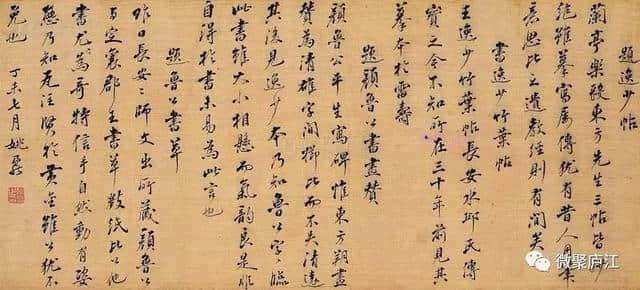 題逸少帖
蘭亭樂毅東方先生三帖皆妙
絕雖摹寫屢傳猶有昔人用筆
意思比之遺教經則有間矣
書逸少竹葉帖
王逸少竹葉帖長安水邱氏傳
寶之今不知所在三十年前見其
摹本於雷壽
題顏魯公書畫贊
顏魯公平生寫碑惟東方朔畫
贊為清雄字間櫛比而不失清遠
其後見逸少本乃知魯公字字臨
此書雖大小相懸而氣韻良是非
自得於書未易為此言也
題魯公書草
昨日長安〻師文出所藏顏魯公
與定襄郡王書草數紙比公他
書尤為奇特信手自然動有姿
態乃知瓦注賢於黃金雖公猶不
免也 丁未七月 姚鼐
微聚庐江